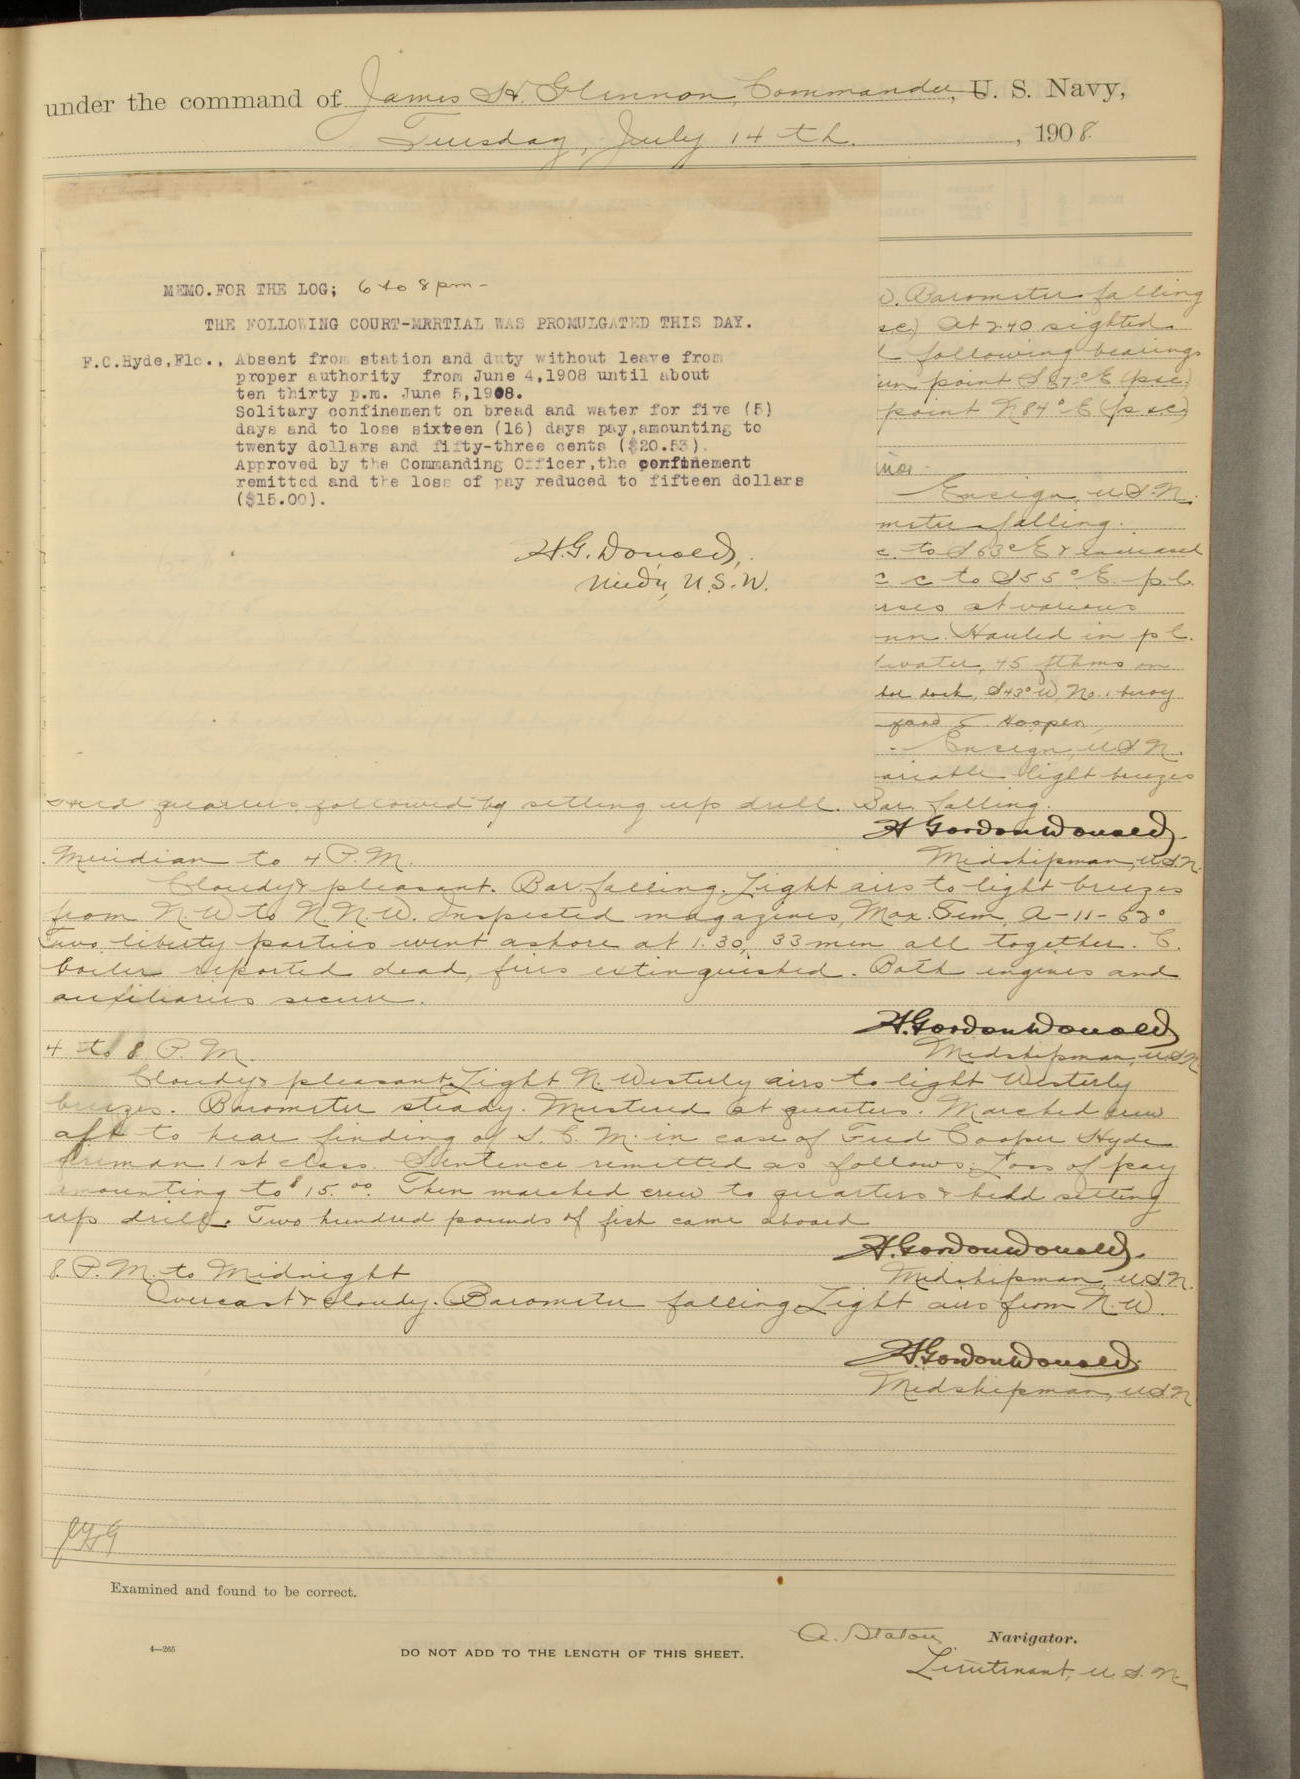 under the command of James H. Glennon, Commander, U. S. Navy,
Tuesday, July 14th. , 1908
MEMO.FOR THE LOG; 6 to 8 pm-
THE FOLLOWING COURT-MRRTIAL WAS PROMULGATED THIS DAY.
F.C.Hyde,F1c., Absent from station and duty without leave from
proper authority from June 4,1908 until about
ten thirty p.m. June 5,1908.
Solitary confinement on bread and water for five (5)
days and to lose sixteen (16) days pay,amounting to
twenty dollars and fifty-three cents ($20.53).
Approved by the Commanding Officer,the confinement
remitted and the loss of pay reduced to fifteen dollars
($15.00).
H.G. Donald,
Midn, U.S.N.
Barometer falling
At 2.40 sighted
following bearings
point S 87° E (psc)
point N 84° E (psc)
Ensign, U.S.N.
falling.
to S 63° E & increased
c to S 55° E. p.c.
at various
Hauled in p l.
water, 45 fthms on
dock, S 43° W, No. 1 buoy
Hooper
Ensign, U.S.N.
light breezes
quarters followed by setting up drill. Bar. falling.
H Gordon Donald
Midshipman, U.S.N.
Meridian to 4 P.M.
Cloudy & pleasant. Bar. falling. Light airs to light breezes
from N.W to N.N.W. Inspected magazines, Max. Tem, A-11-
Two liberty parties went ashore at 1.30, 33 men all together. C.
boiler reported dead, fires extinguished. Both engines and
auxiliaries secure.
H. Gordon Donald
Midshipman, U.S.N
4 to 8 P.M.
Cloudy & pleasant. Light N. Westerly airs to light Westerly
breezes. Barometer steady. Mustered at quarters. Marched crew
aft to hear finding of S.C.M. in case of Fred Cooper Hyde
fireman 1st class. Sentence remitted as follows: Loss of pay
amounting to $15.00. Then marched crew to quarters & held setting
up drill. Two hundred pounds of fish came aboard
H. Gordon Donald.
Midshipman, U.S.N.
8. P.M. to Midnight
Overcast & cloudy. Barometer falling. Light airs from N.W.
H. Gordon Donald
Midshipman, U.S.N
JHG
Examined and found to be correct.
A. Staton Navigator.
4—265
DO NOT ADD TO THE LENGTH OF THIS SHEET.
Lieutenant, U.S.N.